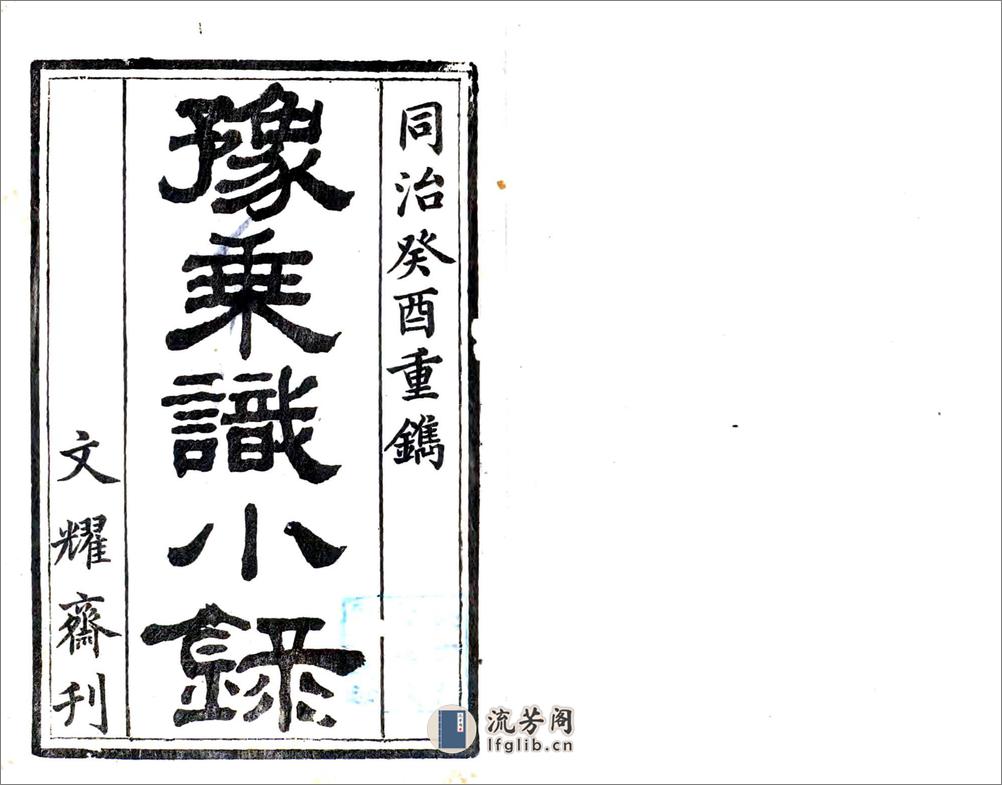 同治癸酉重鐫
豫乘識小錄
文耀齋刊
流芳阁
lfglib.cn